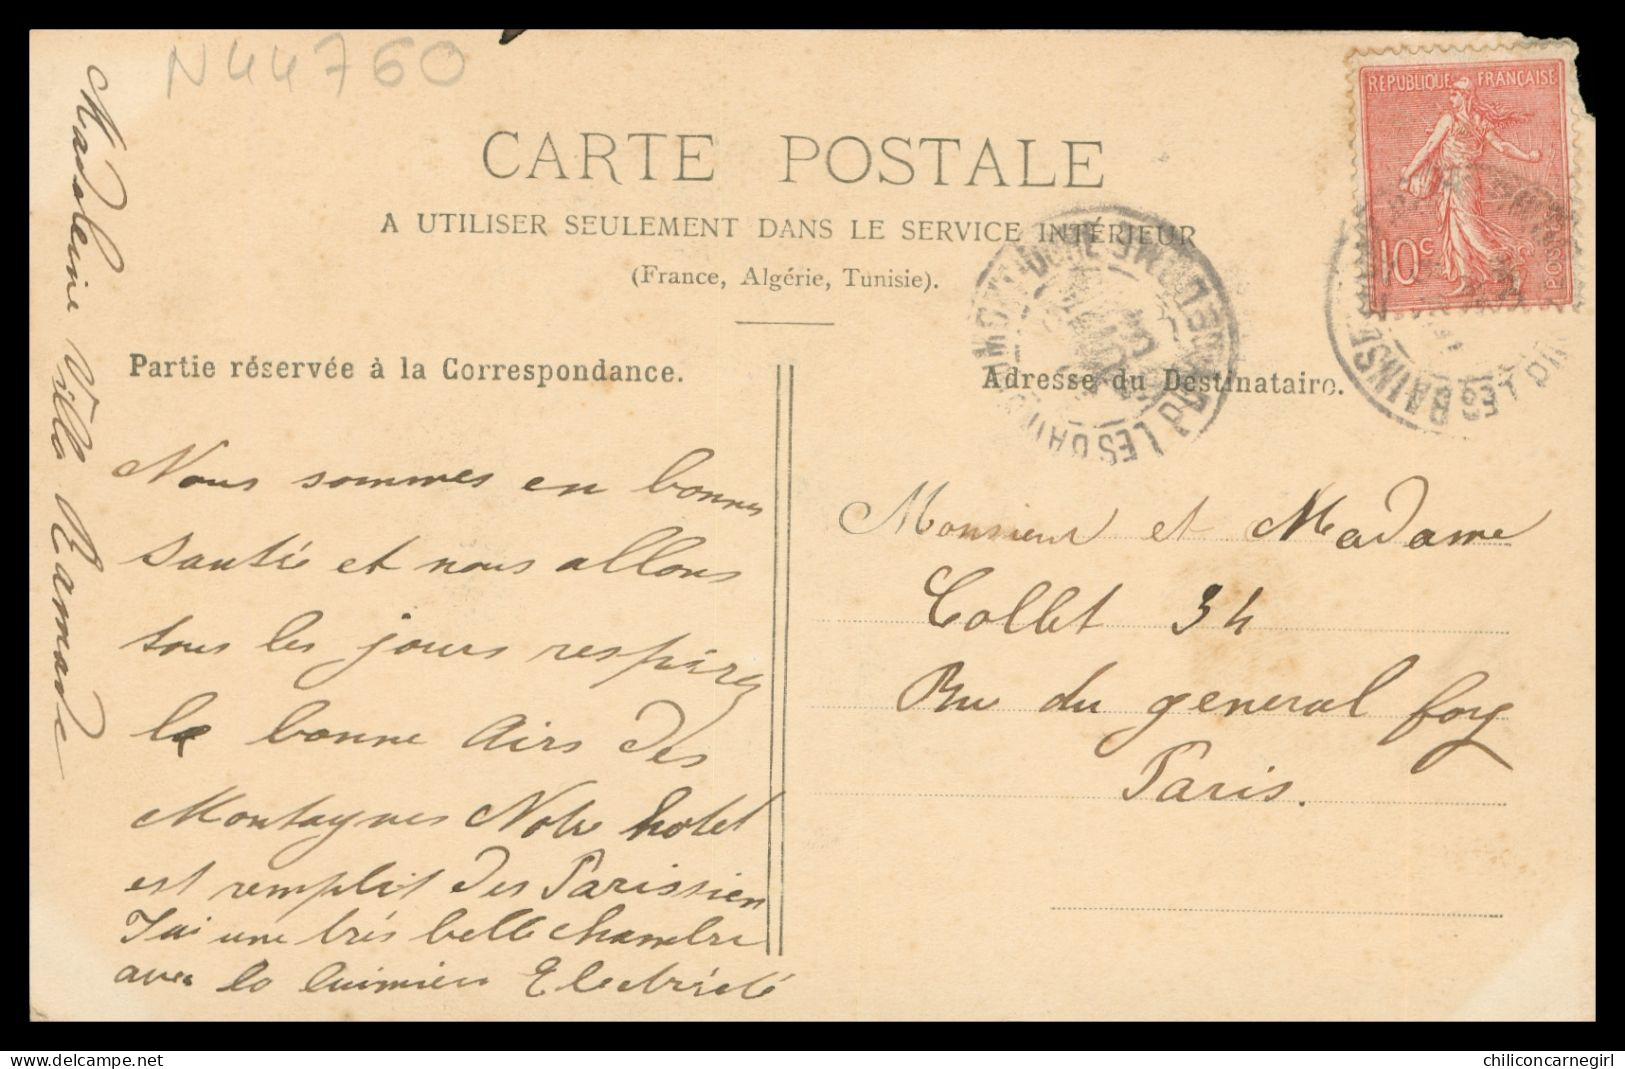 N44760
CARTE POSTALE
A UTILISER SEULEMENT DANS LE SERVICE INTÉRIEUR
(France, Algérie, Tunisie).
Partie réservée à la Correspondance.
Adresse du Destinataire.
REPUBLIQUE FRANÇAISE
10c
POSTES
PUY DE DOME
LES BAINS
Madeleine Villa Ramade
Nous sommes en bonnes
santée et nous allons
tous les jours respirez
le bonne airs des
Montagnes Notre hotel
est remplit des Parissien
J'ai une très belle chambre
avec la luimien Electricité
Monsieur et Madame
Collet 34
Rue du general foy
Paris.
chiliconcarnegirl